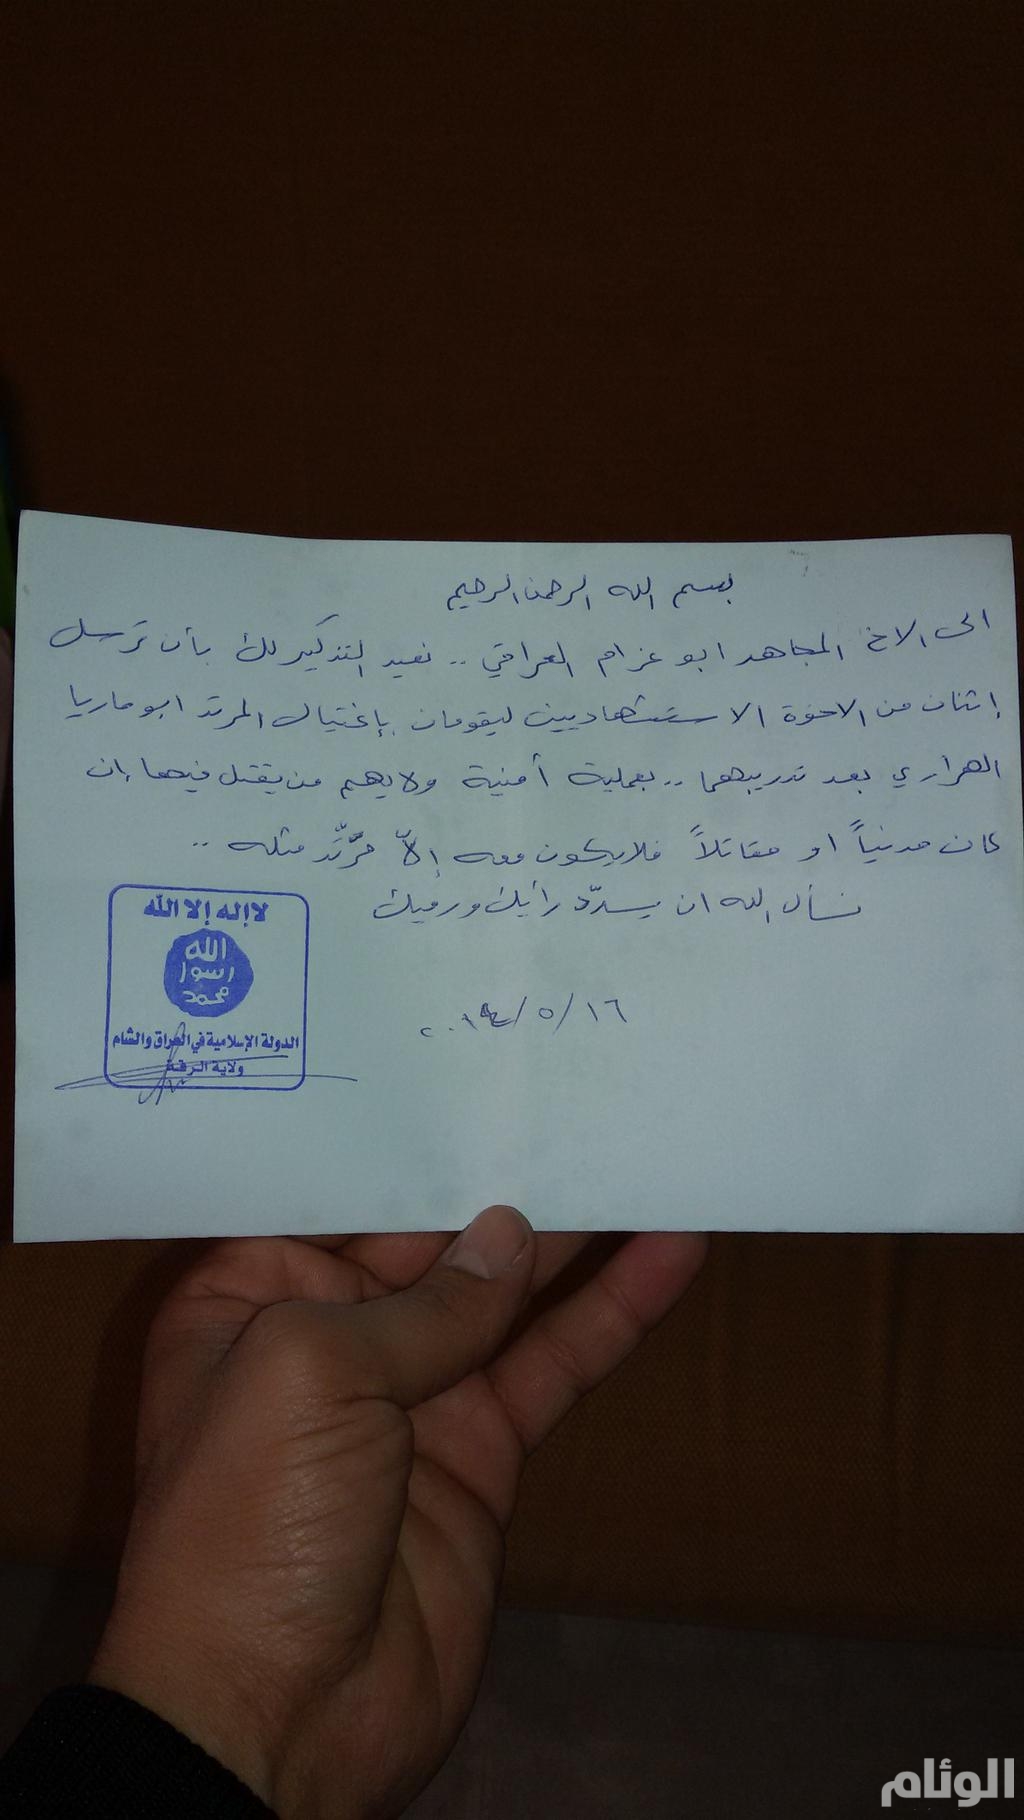 بسم الله الرحمن الرحيم
الى الاخ المجاهد ابو عزام العراقي .. نعيد التذكير لك بأن ترسل
إثنان من الاخوة الاستشهاديين ليقومان بإغتيال المرتد ابو ماريا
الهراري بعد تدريبهما .. بعملية أمنية ولا يهم من يقتل فيها إن
كان مدنياً او مقاتلاً فلا يكون معه إلاّ مرتَّد مثله ..
نسأل الله ان يسدّد رأيك ورميك
٢٠١٤/٥/١٦
لا إله إلا الله
الله
رسول
محمد
الدولة الإسلامية في العراق والشام
ولاية الرقة
الوئام